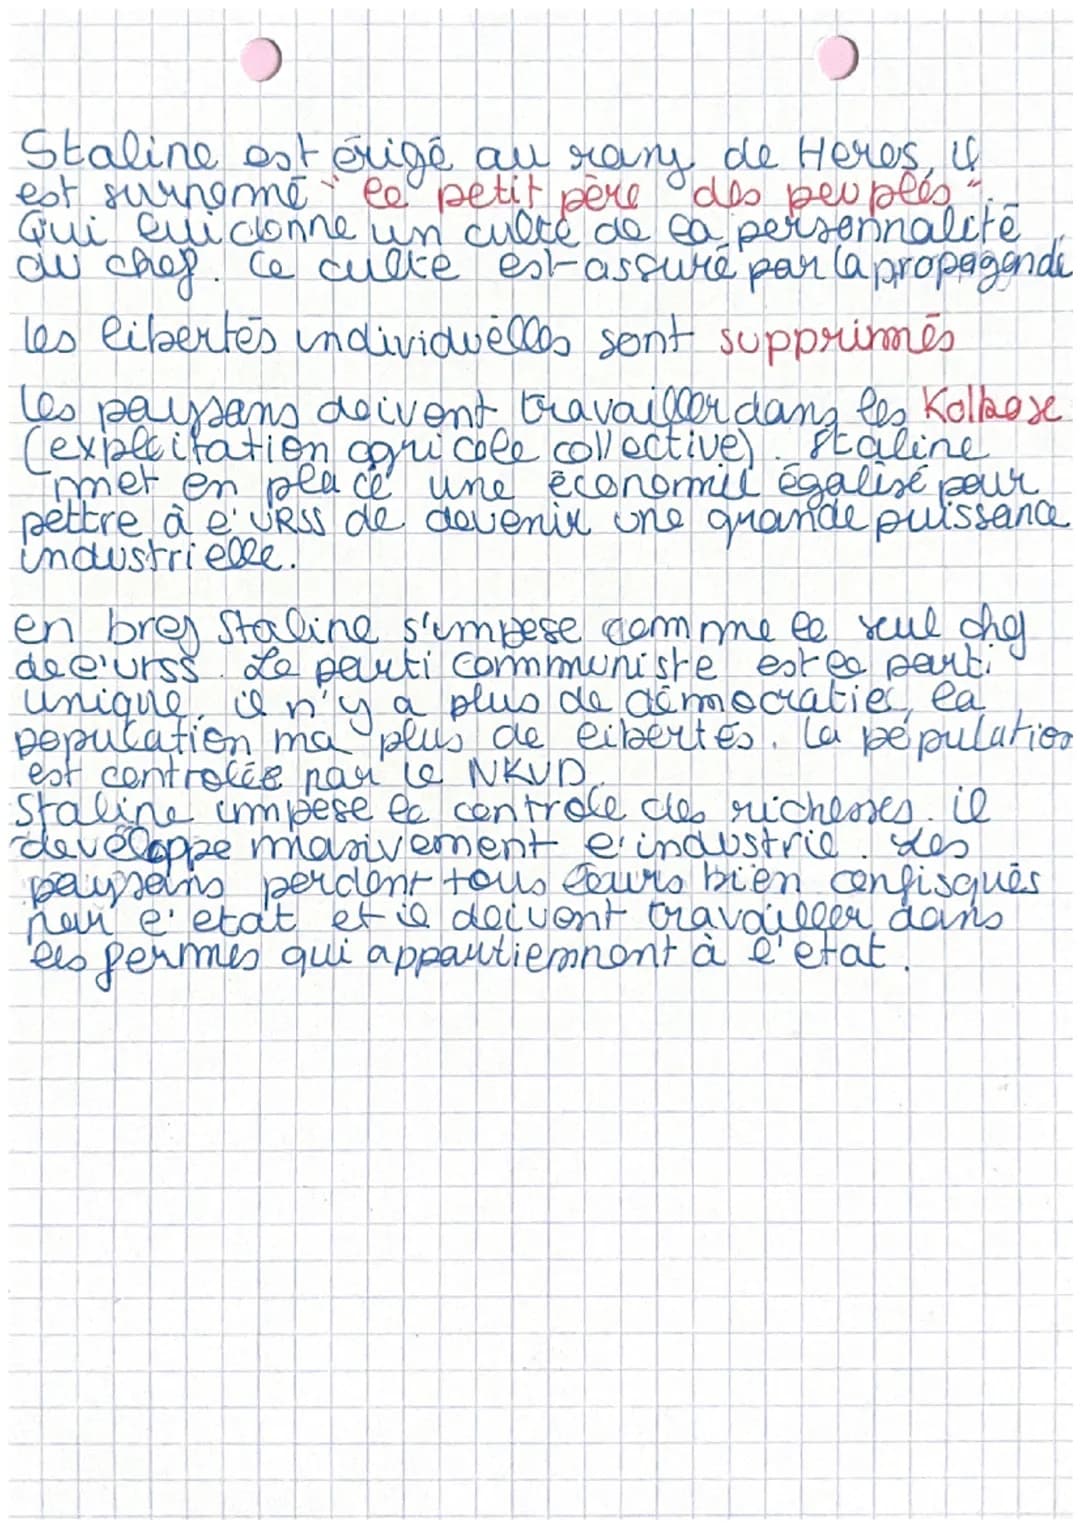 Staline est érigé au rang de Heros, il
est surnomé "le petit père des peuples".
Qui lui donne un culte de la personnalité
du chef. Ce culte est assuré par la propagande
les libertés individuelles sont supprimés
les paysans doivent travailler dans les Kolkose
(exploitation agricole collective). Staline
met en place une économie égalisé pour
pettre à l'URSS de devenir une grande puissance
industrielle.
en bref Staline s'impose comme le seul chef
de l'urss. Le parti communiste est le parti
unique, il n'y a plus de démocratie, la
population ma plus de libertés. La population
est controlée par le NKVD.
Staline impose le controle des richesses. il
développe masivement l'industrie. Les
paysans perdent tous leurs bien confisqués
par l'etat et il doivent travailler dans
les fermes qui appartiennent à l'etat.